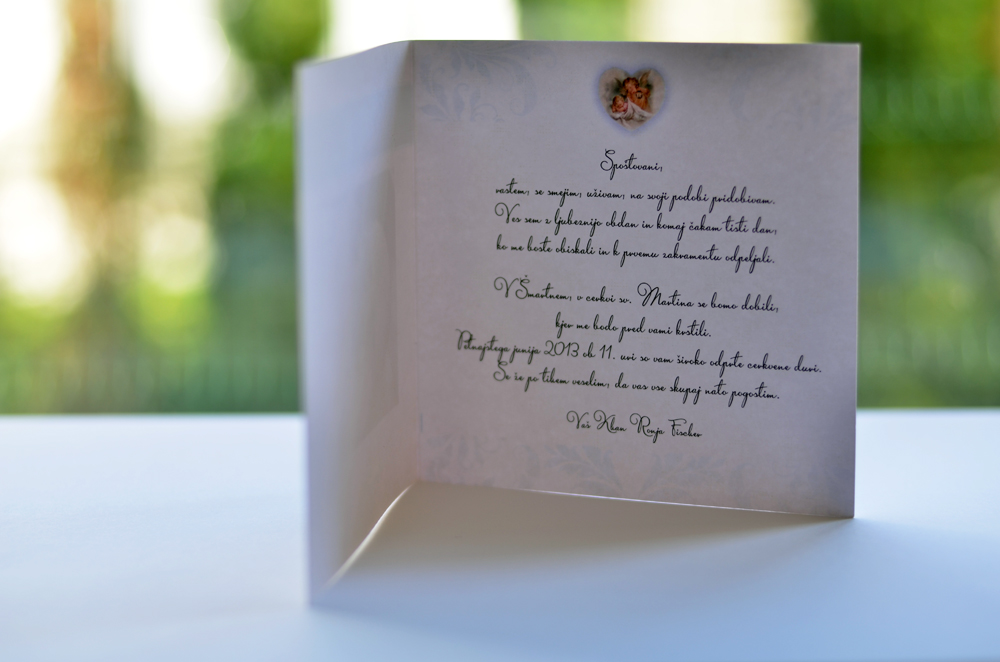 Spoštovani,
rastem, se smejim, uživam, na svoji podobi pridobivam.
Ves sem z ljubeznijo obdan in komaj čakam tisti dan,
ko me boste obiskali in k prvemu zakramentu odpeljali.
V Šmartnem, v cerkvi sv. Martina se bomo dobili,
kjer me bodo pred vami krstili.
Petnajstega junija 2013 ob 11. uri so vam široko odprte cerkvene duri.
Se že po tihem veselim, da vas vse skupaj nato pogostim.
Vaš Khan Ronja Fischer